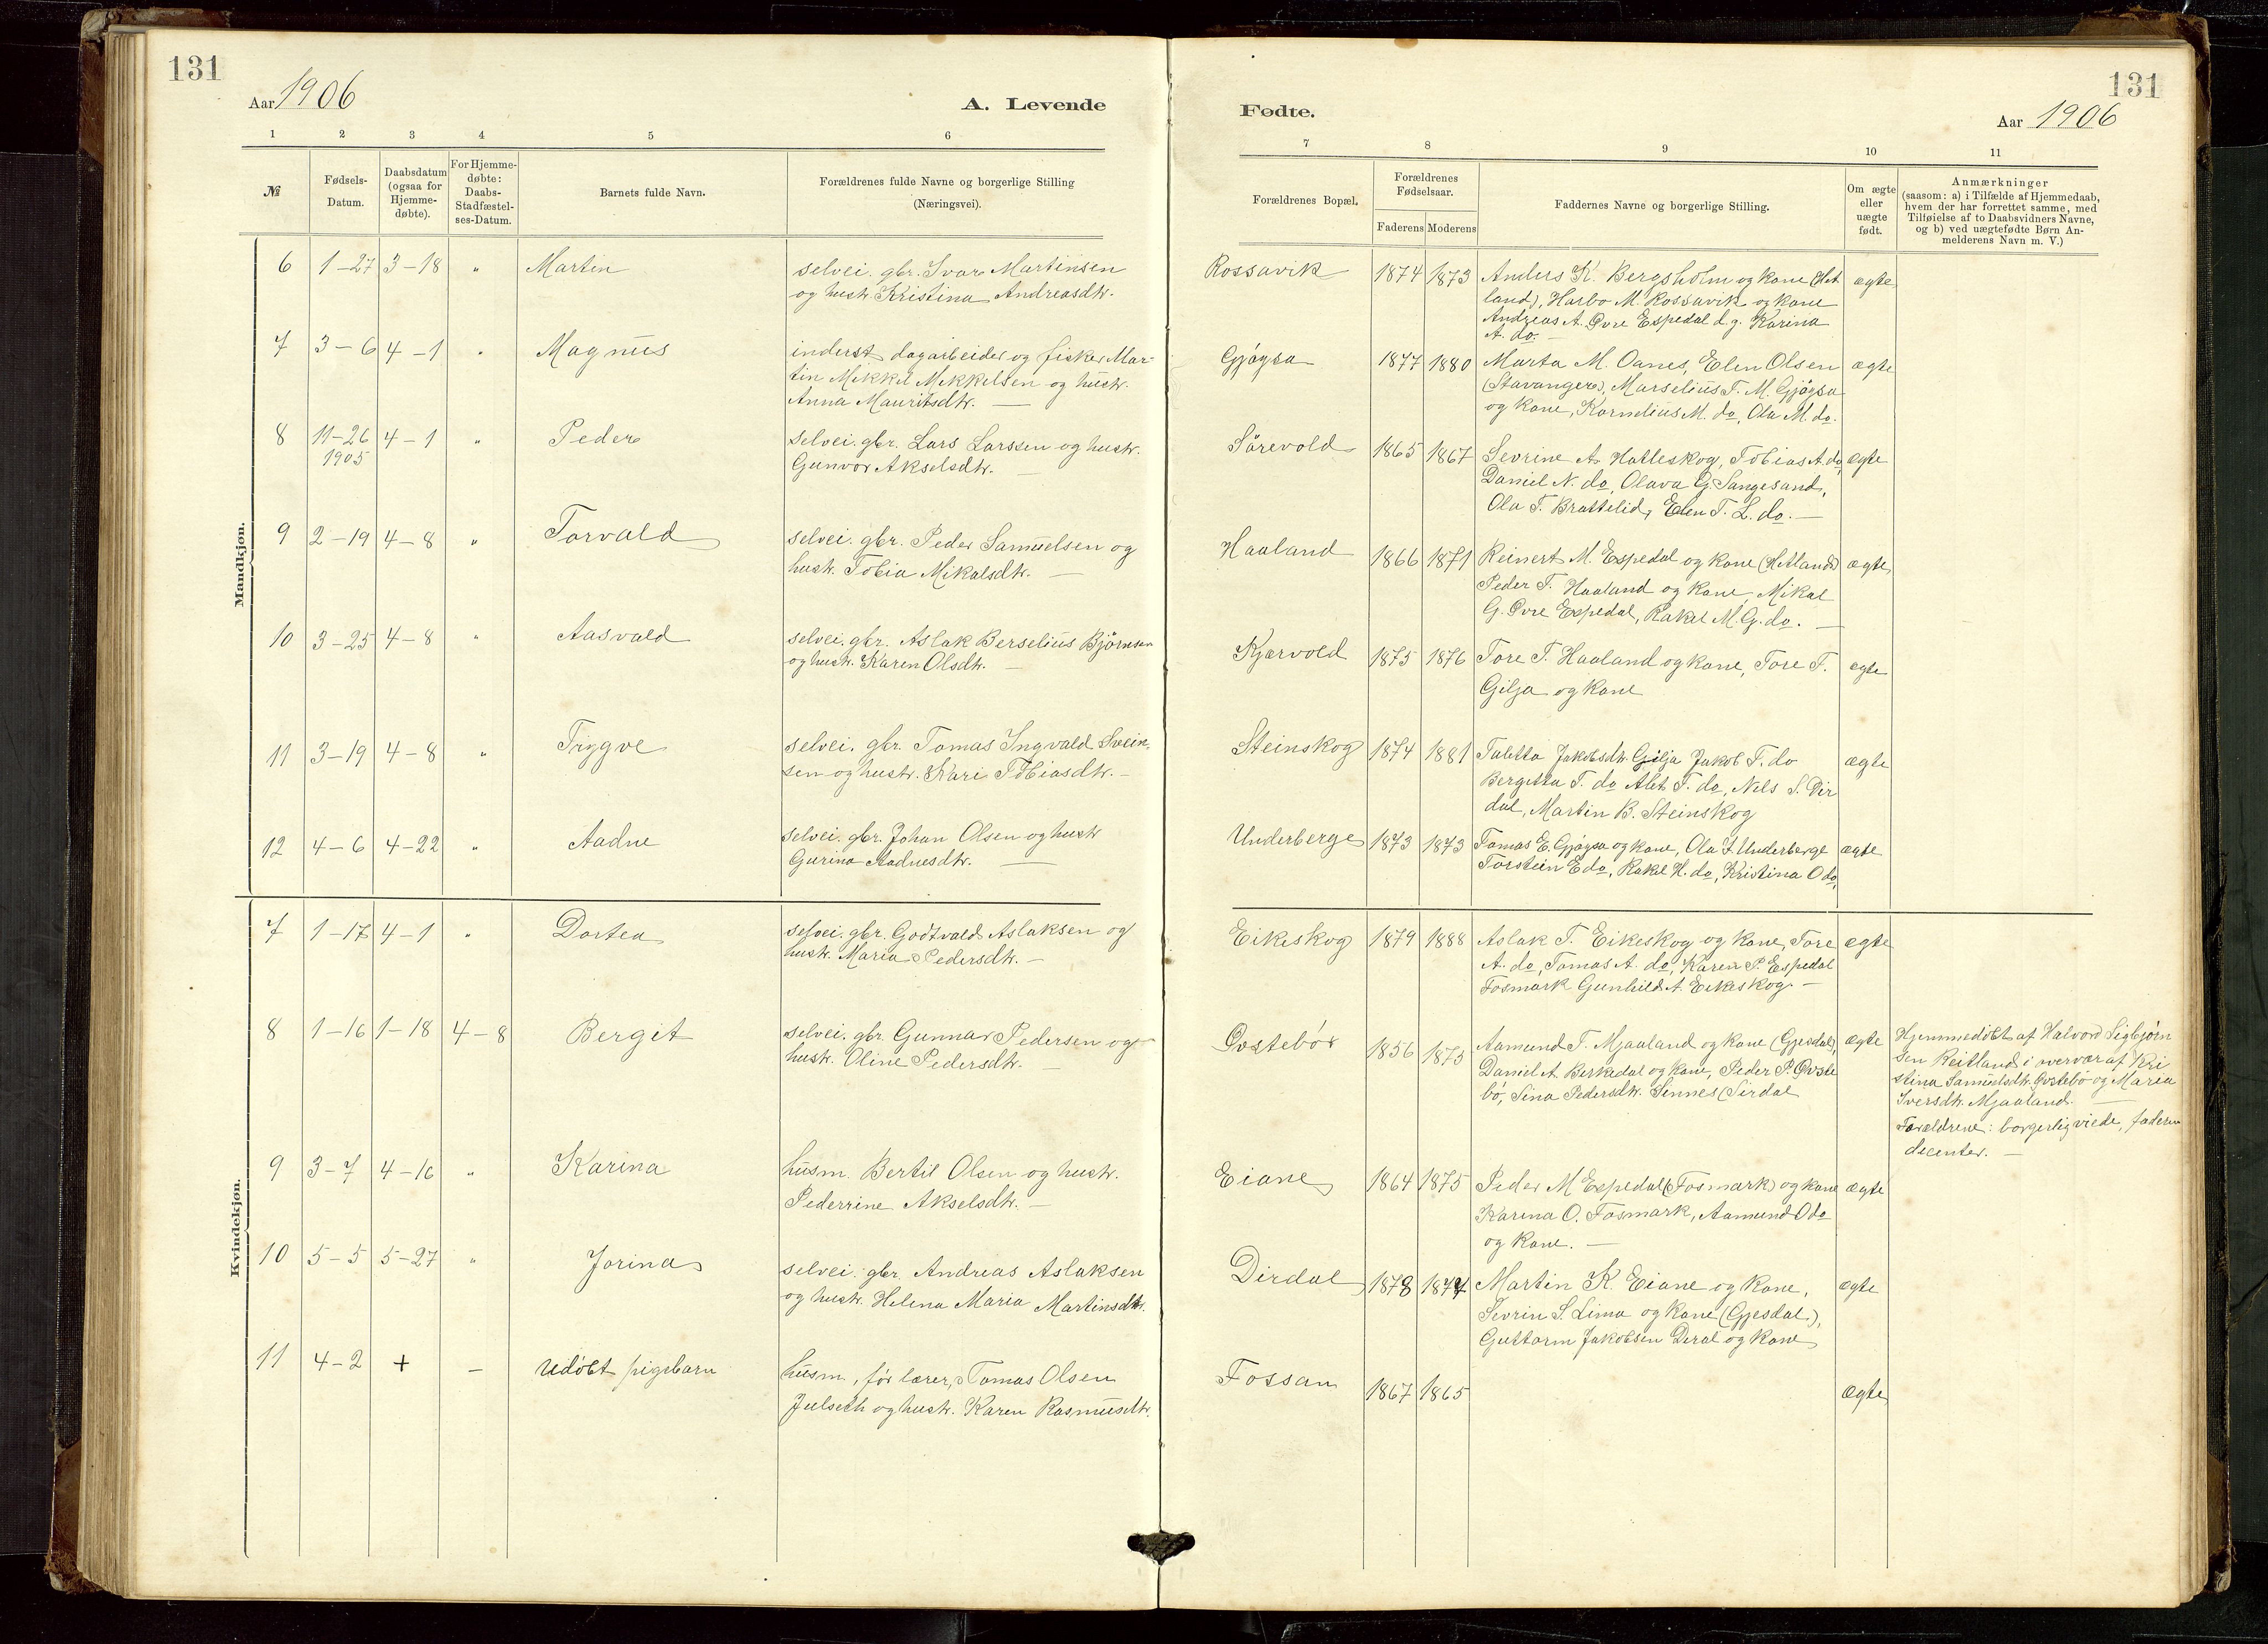 131
Aar 1906
A. Levende
1 2 3 4 5 6
№
Fødsels-
Datum.
Daabsdatum
(ogsaa for
Hjemme-
døbte).
For Hjemme-
døbte:
Daabs-
Stadfæstel-
ses-Datum.
Barnets fulde Navn.
Forældrenes fulde Navne og borgerlige Stilling
(Næringsvei).
Mandkjøn.
6 1-27 3-18 " Martin
selvei. gbr. Ivar Martinsen
og hustr. Kristina Andreasdtr.
7 3-6 4-1 " Magnus
inderst dagarbeider og fisker Mar-
tin Mikkel Mikkelsen og hustr.
Anna Mauritsdtr. —
8 11-26 4-1 " Peder
1905
selvei. gbr. Lars Larssen og hustr.
Gunvor Akselsdtr. —
9 2-19 4-8 " Torvald
selvei. gbr. Peder Samuelsen og
hustr. Tobia Mikalsdtr. —
10 3-25 4-8 " Aasvald
selvei. gbr. Aslak Berselius Bjørnsen
og hustr. Karen Olsdtr. —
11 3-19 4-8 " Trygve
selvei. gbr. Tomas Ingvald Svein-
sen og hustr. Kari Tobiasdtr. —
12 4-6 4-22 " Aadne
selvei. gbr. Johan Olsen og hustr
Gurina Aadnesdtr. —
Kvindekjøn.
7 1-17 4-1 " Dortea
selvei. gbr. Godtvald Aslaksen og
hustr. Maria Pedersdtr. —
8 1-16 1-18 4-8 Bergit
selvei. gbr. Gunnar Pedersen og
hustr. Oline Pedersdtr. —
9 3-7 4-16 " Karina
husm. Bertil Olsen og hustr.
Pederrine Akselsdtr. —
10 5-5 5-27 " Jorina
selvei. gbr. Andreas Aslaksen
og hustr. Helena Maria Martinsdtr.
11 4-2 + — Udøbt pigebarn
husm, før lærer, Tomas Olsen
Julseth og hustr. Karen Rasmusdtr.
131
Fødte.
Aar 1906
7 8 9 10 11
Forældrenes Bopæl.
Forældrenes
Fødselsaar.
Faderens Moderens
Faddernes Navne og borgerlige Stilling.
Om ægte
eller
uægte
født.
Anmærkninger
(saasom: a) i Tilfælde af Hjemmedaab,
hvem der har forrettet samme, med
Tilføielse af to Daabsvidners Navne,
og b) ved uægtefødte Børn An-
melderens Navn m. V.)
Rossavik 1874 1873 Anders K. Bergsholm og kone (Het ægte
land), Harbo M. Rossavik og kone
Andreas A. Øvre Espedal d.g. Karina
A. do. —
Gjøysa 1877 1880 Marta M. Oanes, Elen Olsen ægte
(Stavanger), Marselius T. M. Gjøysa
og kone, Kornelius M. do, Ola M. do.
Sørevold 1865 1867 Sevrine A. Hatleskog, Tobias A. do, ægte
Daniel N. do, Olava G. Sangesand,
Ola T. Brattelid, Elen T. L. do. —
Haaland 1866 1871 Reinert M. Espedal og kone (Hetland) ægte
Peder T. Haaland og kone, Mikal
G. Øvre Espedal, Rakel M. G. do. —
Kjørvold 1875 1876 Tore T. Haaland og kone, Tore T. ægte
Gilja og kone
Steinskog 1874 1881 Taletta Jakobsdtr. Gilja Jakob T. do ægte
Bergitta T. do Alet T. do, Nils S. Dir
dal, Martin B. Steinskog
Underberge 1873 1873 Tomas E. Gjøysa og kone, Ola I. Underberge ægte
Torstein E do, Rakel H. do, Kristina O do,
Eikeskog 1879 1888 Aslak T. Eikeskog og kone, Tore ægte
A. do, Tomas A. do, Karen P. Espedal
Fosmark Gunhild A. Eikeskog —
Øvstebø 1856 1875 Aamund T. Mjaaland og kone (Gjesdal), ægte
Daniel A. Birkedal og kone, Peder P. Øvste
bø, Sina Pedersdtr. Sinnes (Sirdal
Hjemmedøbt af Halvord Sigbjørn
sen Reitland i overvær af Kri
stina Samuelsdtr. Øvstebø og Maria
Iversdtr. Mjaaland. —
Forældrene: borgerlig viede, faderen
dicenter. —
Eiane 1864 1875 Peder M Espedal (Fosmark) og kone ægte
Karina O. Fosmark, Aamund O do
og kone. —
Dirdal 1878 1877 Martin K. Eiane og kone, ægte
Sevrin S. Lima og kone (Gjesdal),
Guttorm Jakobsen Diral og kone
Fossan 1867 1865 ægte